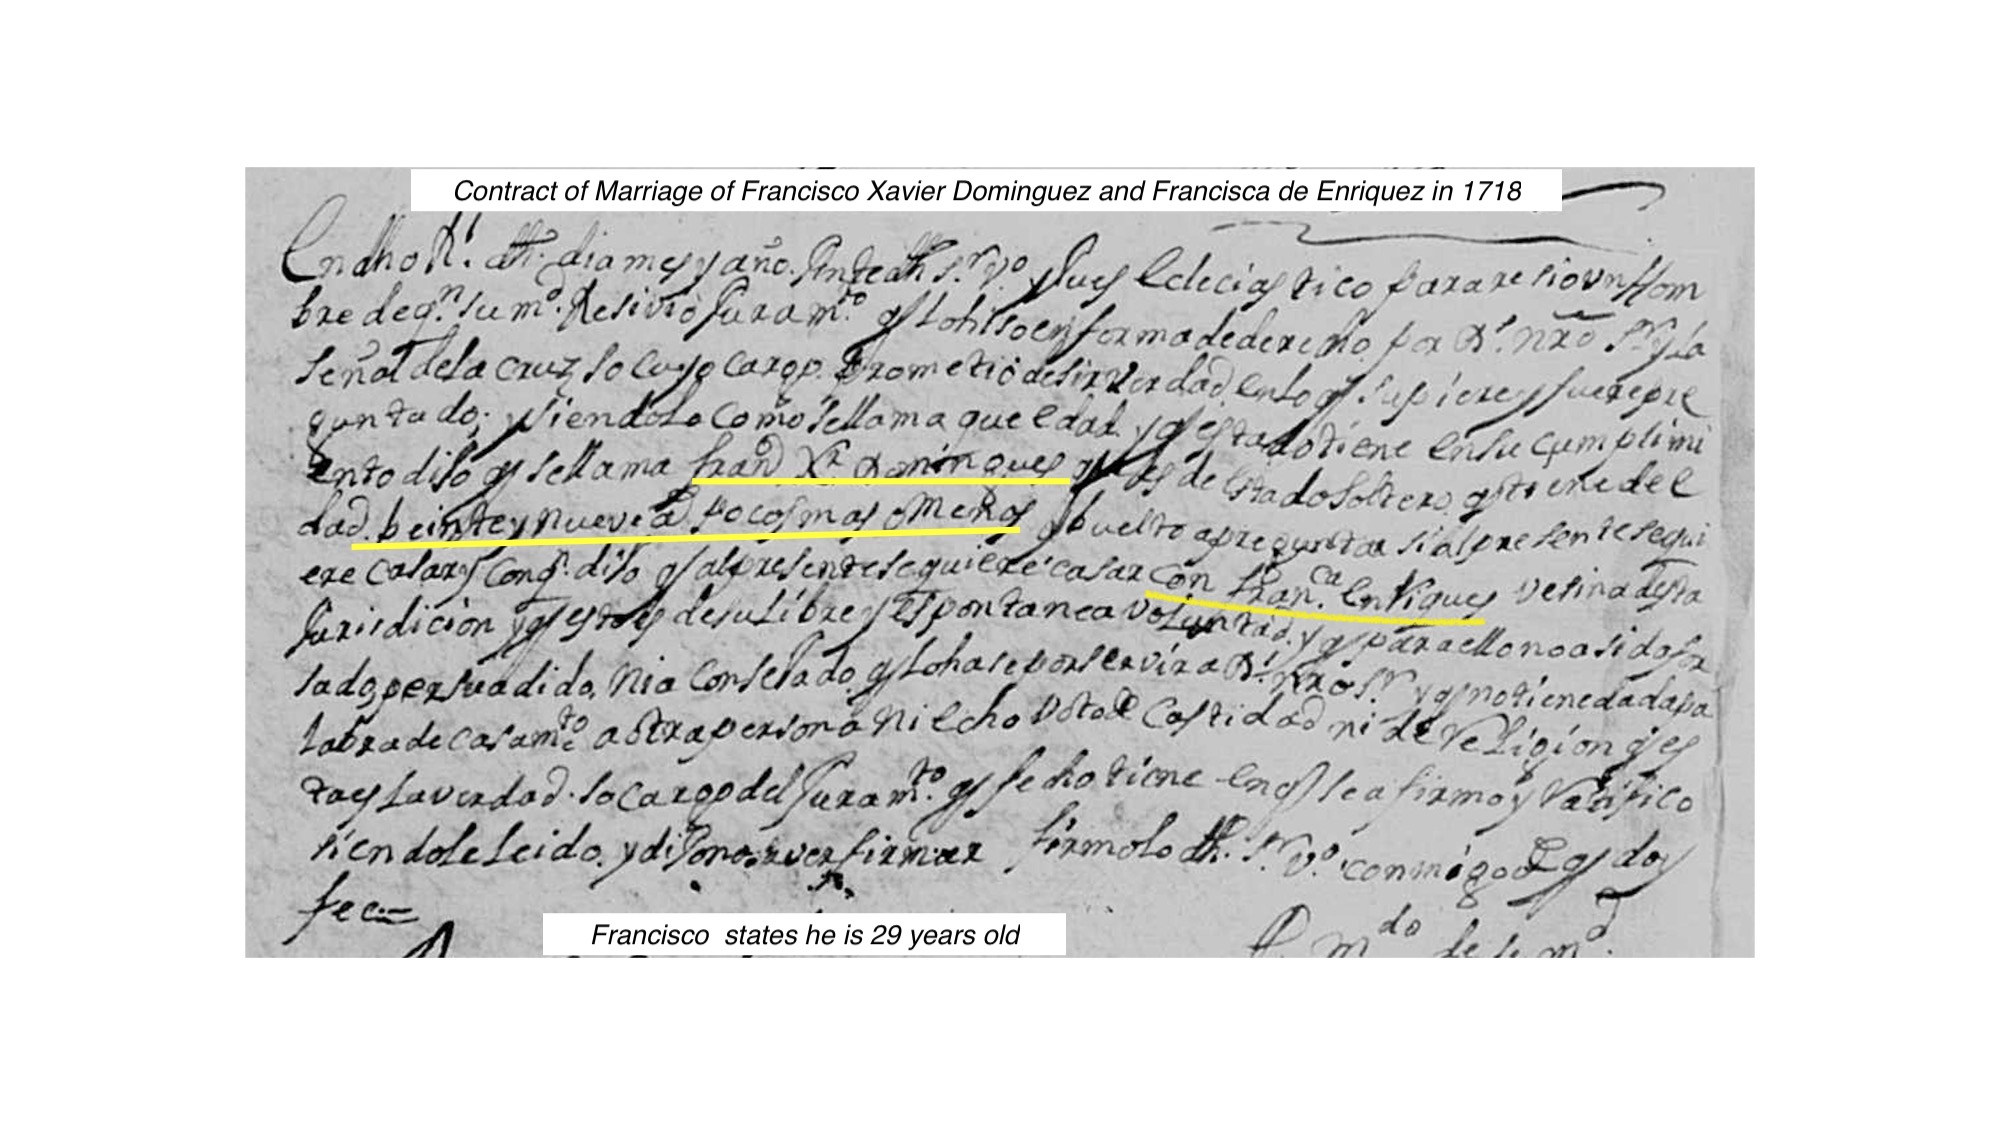 Contract of Marriage of Francisco Xavier Dominguez and Francisca de Enriquez in 1718
En dho Rl. dho. dia mes y año. Ante dho sr. vo. y Jues Ecleciastico pararesio vn Hom
bre de qn. su md. Resivio Juramto. qs lohiso en forma de derecho por Ds. nro Sr. y la
señal de la cruz so cuyo cargo. Prometio desir verdad en lo qs supiere y fuere pre
guntado; y siendolo como se llama que edad y qs estado tiene en su cumplimi
ento diso qs se llama Frano Xr Domingues qs es de estado soltero qs tiene de e
dad beinte y nueve as pocos mas o menos qs buelto a preguntar si al presente se qui
ere casar y con qn. diso qs al presente se quiere casar con Franca. Enriques vesina desta
Jurisdicion y qs esto es de su libre y espontanea voluntad. y qs para ello no a sido for
sado, persuadido, ni a conseIado qs lo hase por servir a Ds. nro Sr. y qs no tiene dada pa
labra de casamto a otra persona ni echo voto de castidad ni de religion qs es
ta es la verdad. so cargo del Juramto. qs fecho tiene en qs se afirmo y ratifico
siendole leido. y diso no saver firmar firmolo dho. Sr. vo. conmigo qs doy
fee=
Francisco states he is 29 years old